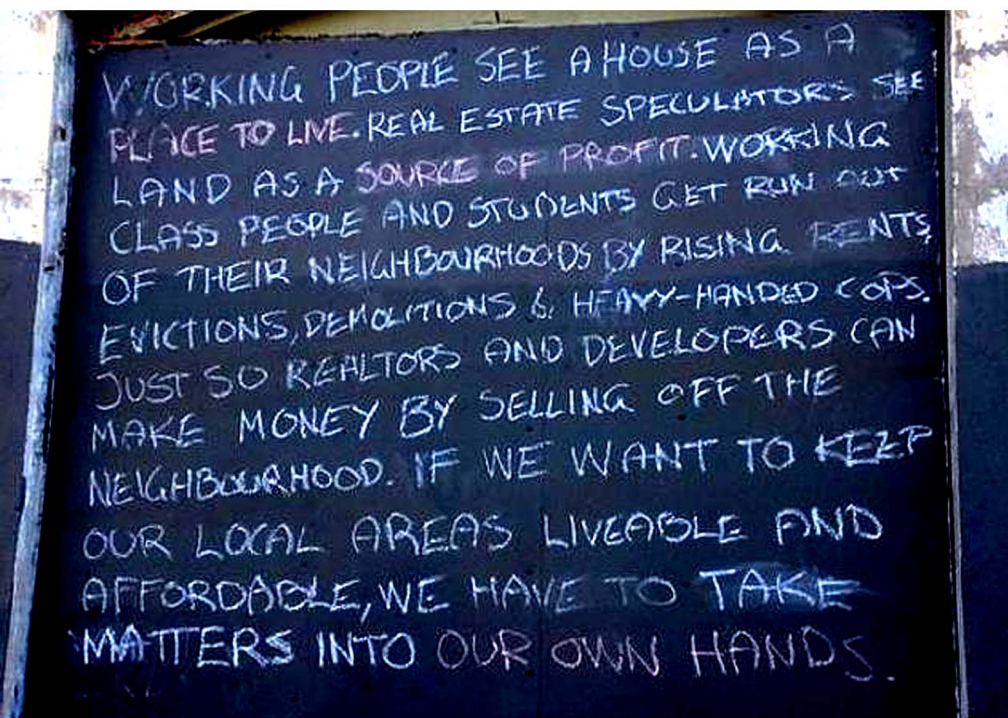 WORKING PEOPLE SEE A HOUSE AS A
PLACE TO LIVE. REAL ESTATE SPECULATORS SEE
LAND AS A SOURCE OF PROFIT. WORKING
CLASS PEOPLE AND STUDENTS GET RUN OUT
OF THEIR NEIGHBOURHOODS BY RISING RENTS,
EVICTIONS, DEMOLITIONS & HEAVY-HANDED COPS.
JUST SO REALTORS AND DEVELOPERS CAN
MAKE MONEY BY SELLING OFF THE
NEIGHBOURHOOD. IF WE WANT TO KEEP
OUR LOCAL AREAS LIVEABLE AND
AFFORDABLE, WE HAVE TO TAKE
MATTERS INTO OUR OWN HANDS.